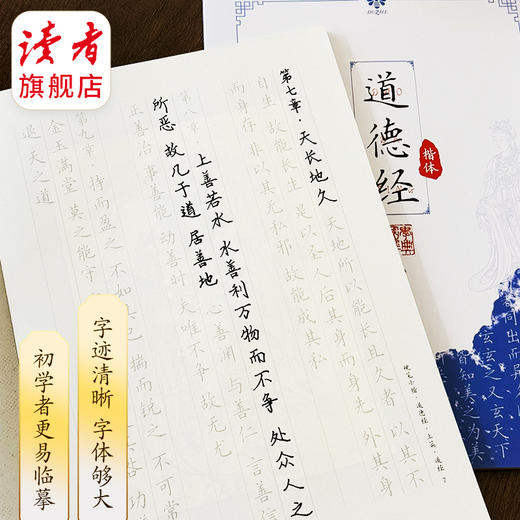 读者
旗舰店
DUZHE
道德经
楷体
第七章·天长地久 天地所以能长且久者 以其不
自生 故能长生 是以圣人后其身而身先 外其身
而身存 非以其无私邪 故能成其私
第八章 上善若水 水善利万物而不争 处众人之
所恶 故几于道 居善地 心善渊 与善仁 言善信
正善治 事善能 动善时 夫唯不争 故无尤
第九章 持而盈之 不如其已 揣而锐之 不可常
金玉满堂 莫之能守
退 天之道
硬笔小楷·道德经·上篇·道经 7
同出而异
玄之又玄
天下
皆知美之为美
字迹清晰 字体够大
初学者更易临摹